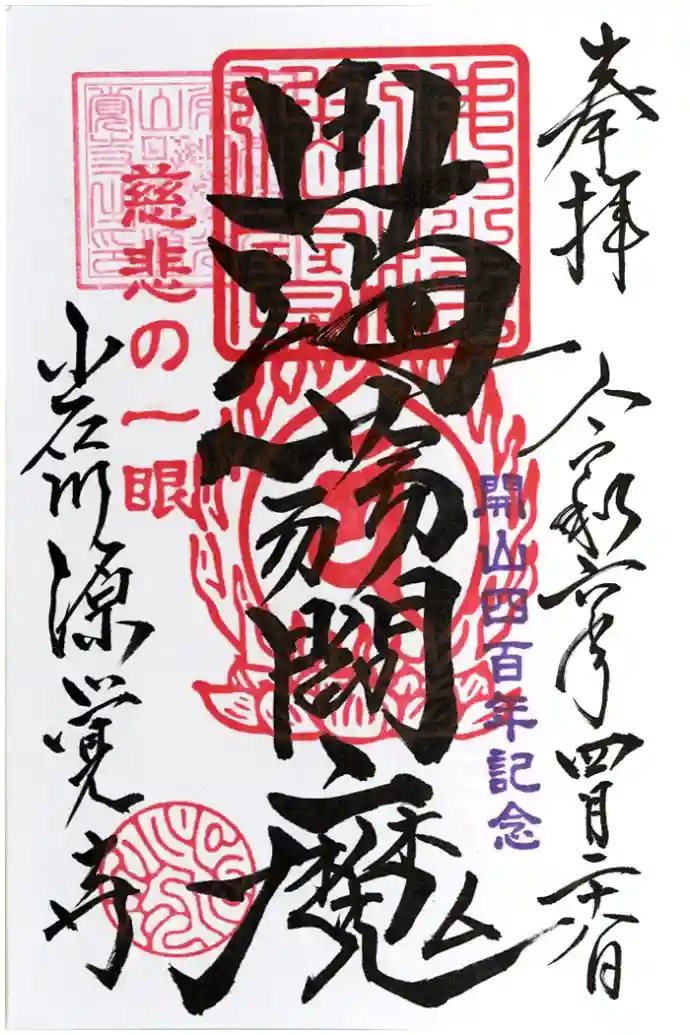 奉拝
令和六年四月
開山四百年記念
蒟蒻閻魔
慈悲の一眼
小石川源覚寺